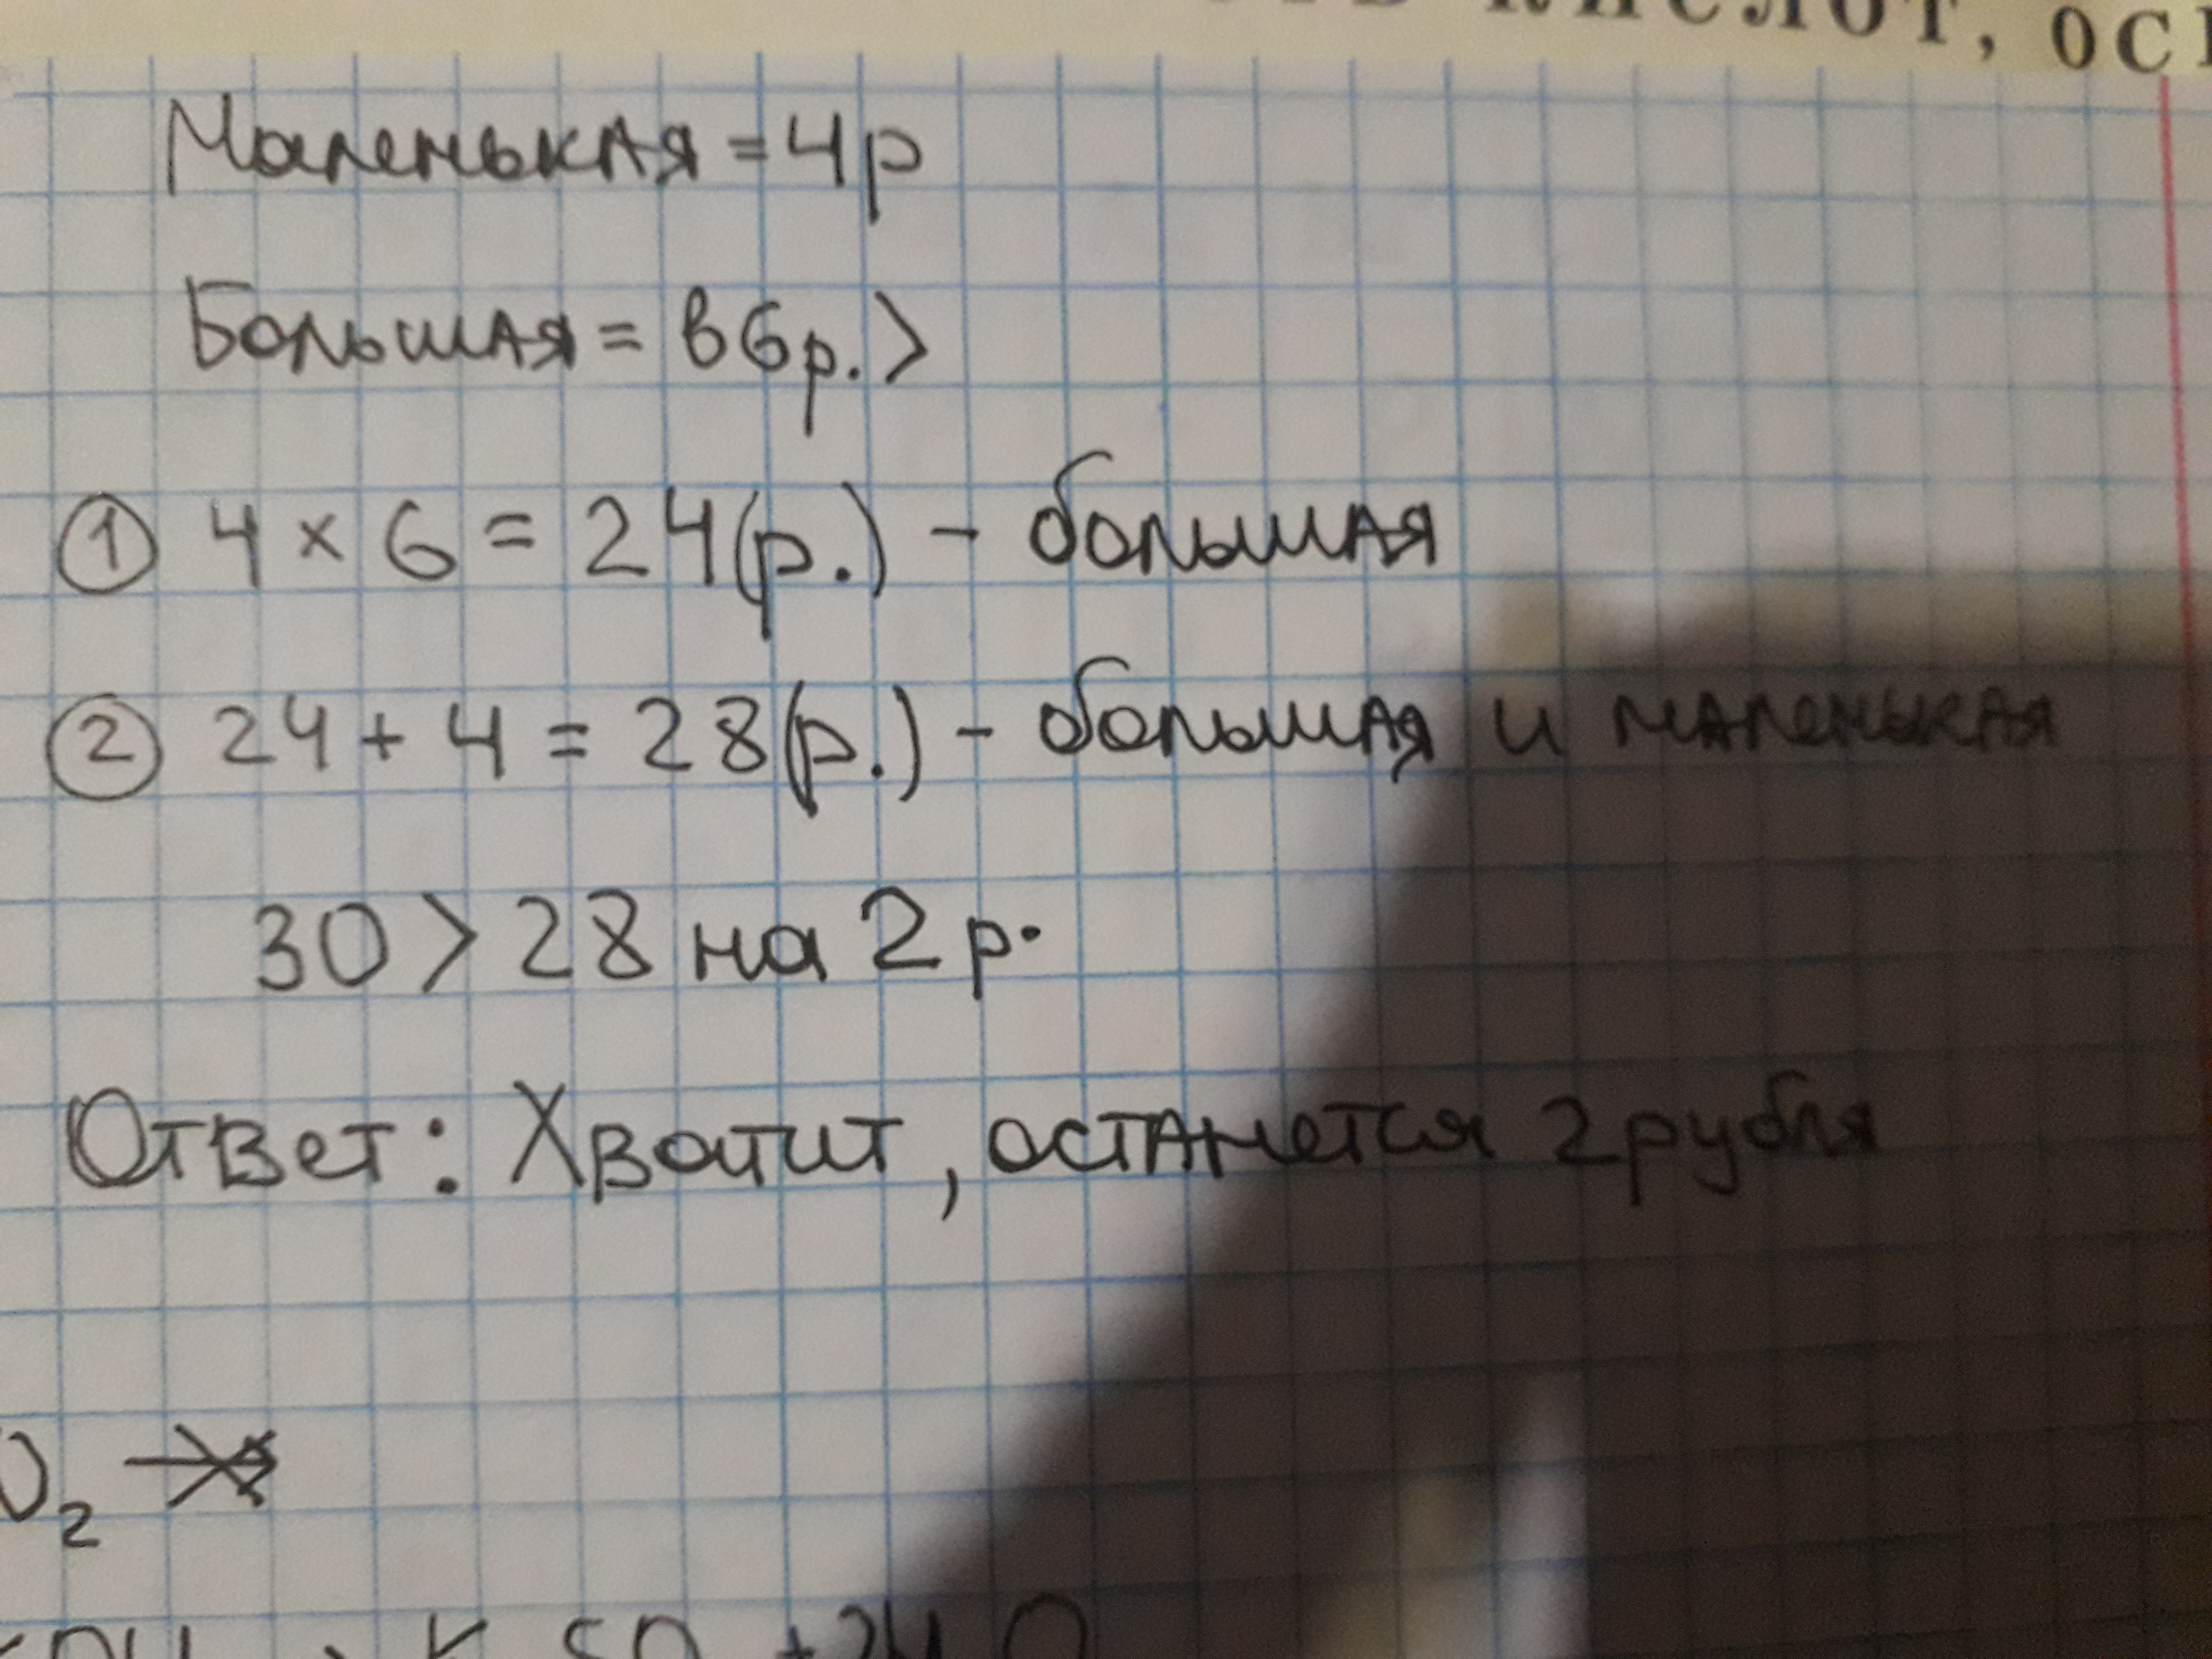 КИСЛОТ, ОС
Маленькая = 4р
Большая = в 6р. >
① 4 × 6 = 24(р.) - большая
② 24 + 4 = 28(р.) - большая и маленькая
30 > 28 на 2 р.
Ответ: Хватит, останется 2 рубля
O₂ →